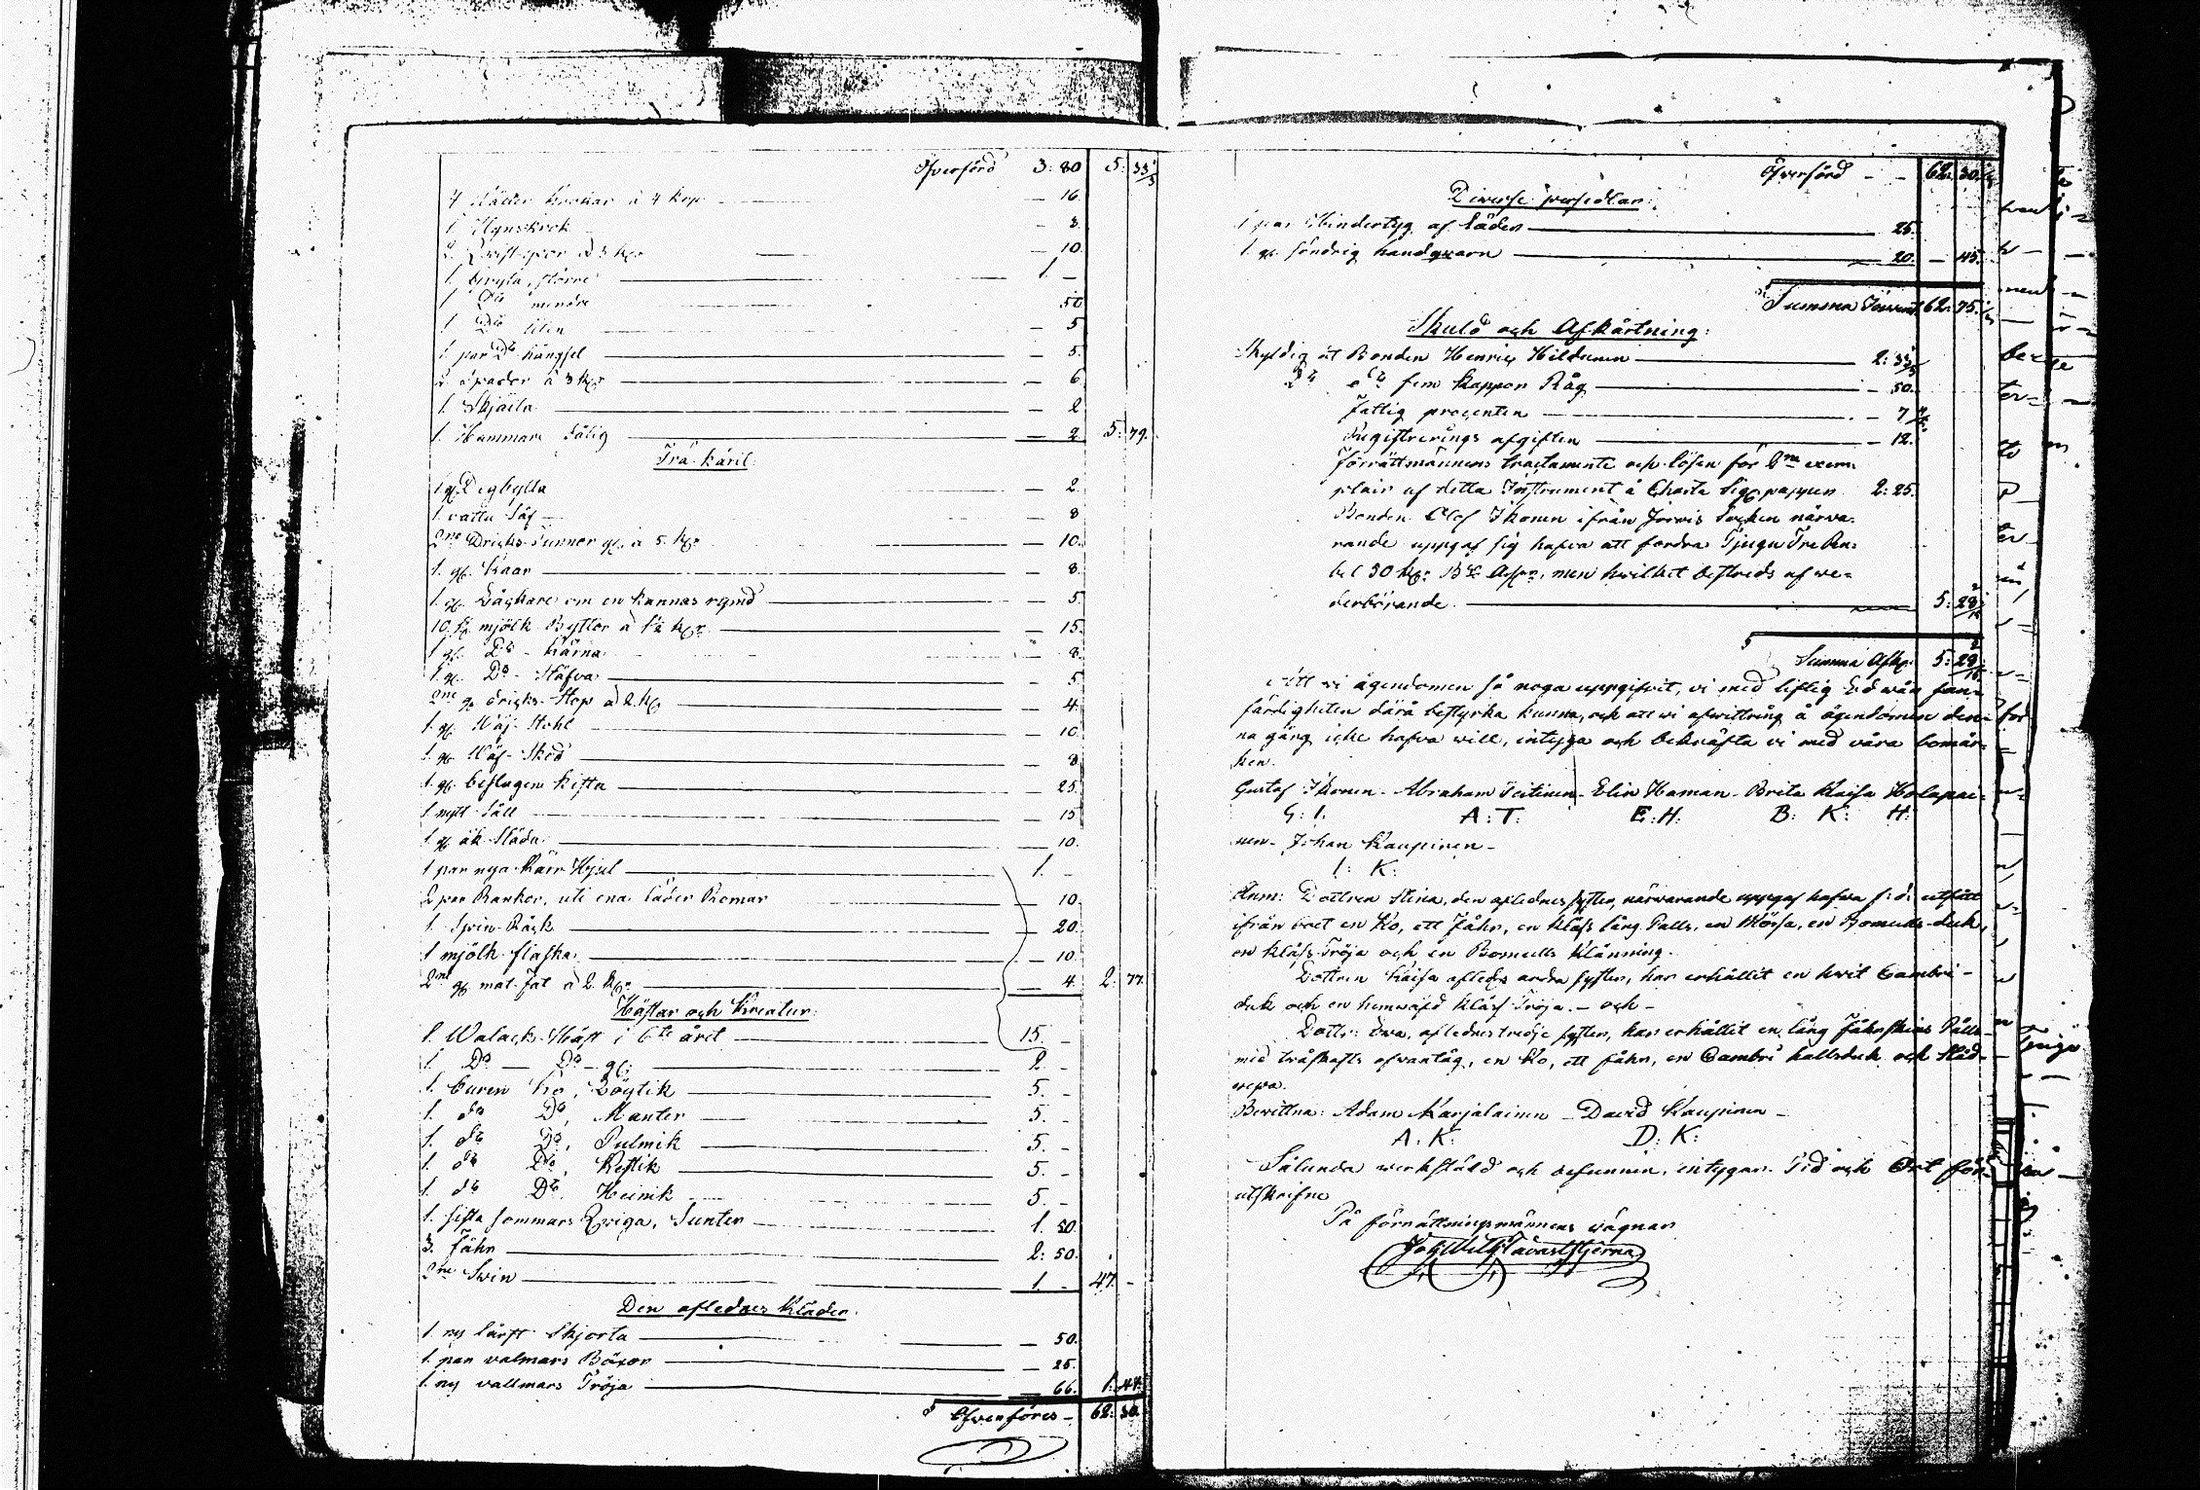 Öfverförd 3: 80 5: 33 1/3
4 Kädier krokar à 4 kop — 16.
1. Ugnskrok — 8
2 à 5 kop — 10.
1. Gryta, större 1. —
1 Do mindre 50
1 Do liten — 5
1 par Do hängsel — 5.
2 spader à 3 kop — 6
1. Skjäila — 2
1. Hammare dålig — 2 5: 79.
Trä-käril.
1 gl. Degbytta — 2.
1. vattu Såf — 8
2ne Dricks-Tunnor gl. à 5. kop — 10.
1. gl. Kaar — 8.
1 gl. Lågkare om en kannas rymd — 5.
10. st. mjölk Byttor à 1½ kop — 15.
1 gl. Do - Kärna — 8.
1. gl. Do - Stäfva — 5
2ne gl dricks-Stop à 2 kop — 4.
1. gl. Wäf-Stohl — 10
1. gl. Wäf-Sked — 8
1. gl. beslagen kista — 25.
1 nytt Såll — 15
1 gl. åk-Släda — 10.
1 par nya Kärr Hjul 1. —
2 par Rankor, uti ena läder Remar — 10
1. Spin-Råck — 20.
1 mjölk-flaska — 10.
2ne gl mat-fat à 2 kop — 4. 2: 77.
Hästar och Kreatur:
1. Walack-Häst i 6te året 15. —
1 Do — Do - gl: 2 —
1. buren ko, Löytik 5. —
1. do Do, Manter 5. —
1. do Do, Pulmik 5. —
1. do Do, Kestik 5. —
1. do Do, Heinik 5. —
1. sista sommars Qwiga, Sunter 1. 50
3. Fåhr 2: 50.
2ne Swin 1. — 47. -
Den aflednes Kläder.
1. ny lärft Skjorta — 50.
1. par valmars Böxor — 25.
1. ny vallmars Tröja — 66. 1: 41.
Öfverföres — 62: 30.
Öfverförd — — 62: 30. 1/3
Diverse persedlar:
1 par Hindertyg af Läder 25.
1 gl. söndrig handqvarn 20. — 45.
Summa Inventarii 62: 75. 1/3
Skuld och Afkårtning:
Skyldig åt Bonden Henric Hildunen 2: 33 1/3
Do do fem kappor Råg — 50.
Fattig procenten — 7
Registrerings afgiften — 12.
Förrättmännens tractamente och lösen för 2ne exem-
plair af detta Instrument à Charta Sig. papper 2: 25.
Bonden Olof Ikonen ifrån Jorois Socken närva-
rande uppgaf sig hafva att fordra Tjugu Tre Ru-
bel 50 kop: Bco Assr., men hvilket bestreds af we-
derbörande. 5: 28
Summa Afkg. 5: 28
Att vi ägendomen så noga uppgifvit, vi med liflig Ed vår san-
färdigheten därå bestyrka kunna, och att vi afvittring å ägendomen den-
na gång icke hafva will, intyga och bekräfta vi med våra bomär-
ken.
Gustaf Ikonen - Abraham Teitinen - Elin Haman - Brita Kaisa Holapai-
G: I. A: T. E: H. B: K: H:
nen - Johan Kaupinen -
I: K:
Anm: Dottren Stina, den aflednes syster, närvarande uppgaf hafva f: d: utfått
ifrån boet en Ko, ett Fåhr, en kläss lång Palls, en Mössa, en Bomulls-duk,
en kläss Tröja och en Bomulls Klänning.
Dottren Kaisa afledes andra syster, har erhållit en hvit Cambri-
duk och en hemväfd Kläs Tröja. - och -
Dottr: Ewa, aflednes tredje syster, har erhållit en lång Fåhrskins Pälls
med tråskafts ofvantåg, en Ko, ett fåhr, en Cambri hallsduk och Städ-
repa.
Bevittna: Adam Karjalainen - David Kaupinen -
A: K: D: K:
Sålunda verkstäld och befunnen, intygar. Tid och Ort för-
utskrifne
På förrättningsmännens wägnar
Joh Wilh Tavaststjerna